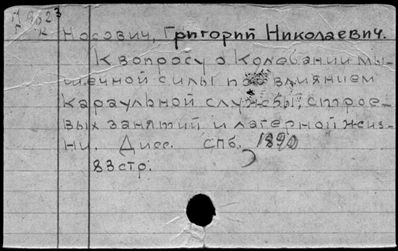 Носович, Григорий Николаевич.
К вопросу о колебании мы-
шечной силы под влиянием
караульной службы, строе-
вых занятий и лагерной жиз-
ни. Дисс. СПб. 1890
83 стр.